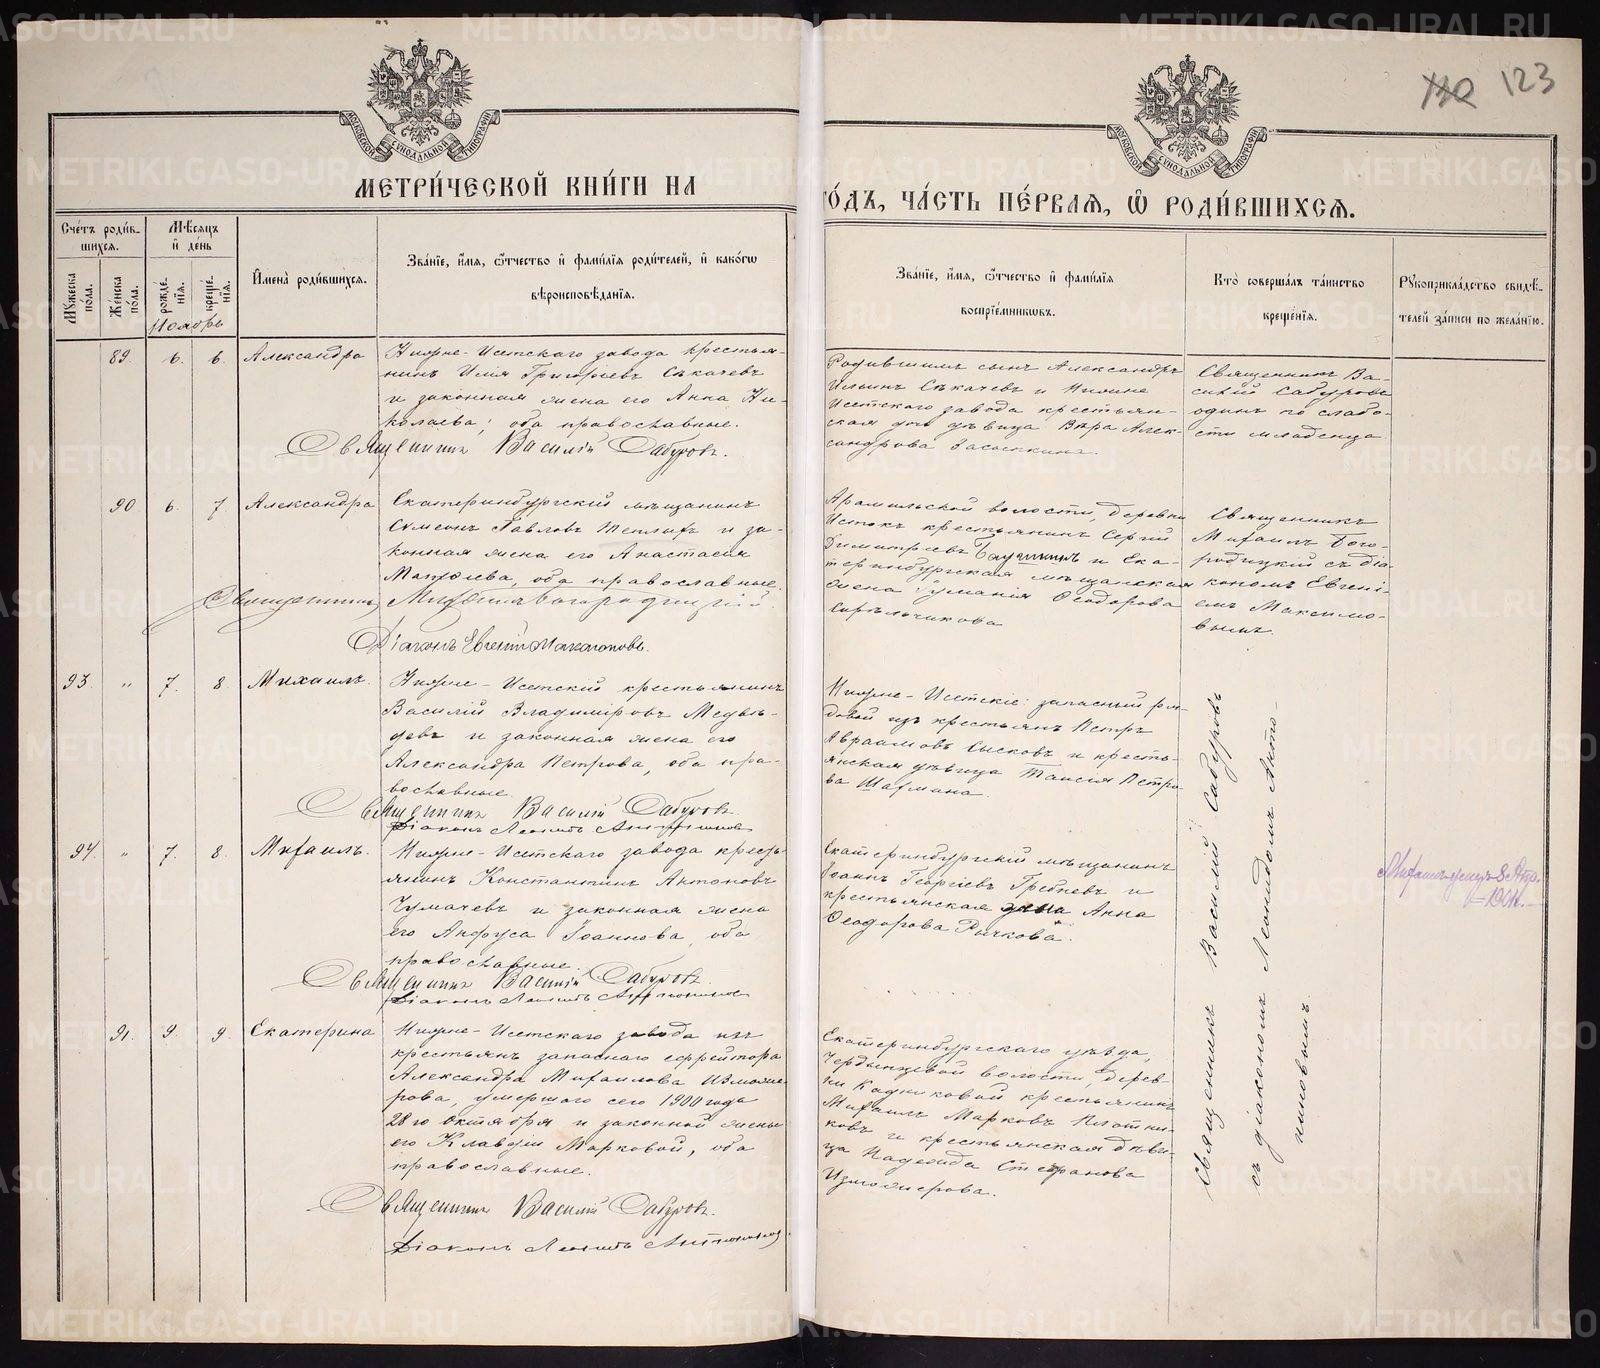 110 123
МОСКОВСКОЙ СѴНОДАЛЬНОЙ ТИПОГРАФІИ
МОСКОВСКОЙ СѴНОДАЛЬНОЙ ТИПОГРАФІИ
МЕТРИ́ЧЕСКОЙ КНИ́ГИ НА
ГО́ДЪ, ЧА́СТЬ ПЕ́РВАѦ, Ѡ҆ РОДИ́ВШИХСѦ.
Сче́тъ роди́в-
шихсѧ.
Мѣ́сѧцъ
и҆ де́нь
Мꙋ́жеска
по́ла.
Же́нска
по́ла.
рожде́-
нїѧ.
креще́-
нїѧ.
И҆мена̀ роди́вшихсѧ.
Зва́нїе, и҆́мѧ, ѻ҆́тчество и҆ фами́лїѧ роди́телей, и҆ како́гѡ
вѣроисповѣ́данїѧ.
Зва́нїе, и҆́мѧ, ѻ҆́тчество и҆ фами́лїѧ
воспрїе́мникѡвъ.
Кто̀ соверша́лъ та́инство
креще́нїѧ.
Рꙋкоприкла́дство свидѣ́-
телей за́писи по жела́нїю.
Ноябрь
89. 6. 6. Александра
Нижне-Исетскаго завода крестья-
нинъ Илія Григоріевъ Секачевъ
и законная жена его Анна Ни-
колаева; оба православные.
Священникъ Василій Сабуровъ.
Родившимъ сынъ Александръ
Ильинъ Секачевъ и Нижне
Исетскаго завода крестьян-
ская дѣвица Вѣра Алек-
сандрова
Священникъ Ва-
силій Сабуровъ
одинъ по слабо-
сти младенца
90 6. 7. Александра
Екатеринбургскій мѣщанинъ
Симеонъ Павловъ и за-
конная жена его Анастасія
Матѳіева, оба православные.
Священникъ Михаилъ Богородицкій.
Діаконъ Евгеній Максимовъ.
Арамильской волости, деревни
Истокъ крестьянинъ Сергій
Димитріевъ и Ека-
теринбургская мѣщанская
жена Ѳеодорова
Стрѣльникова
Священникъ
Михаилъ Бого-
родицкій съ діа-
кономъ Евгені-
емъ Максимо-
вымъ.
93 " 7. 8. Михаилъ.
Нижне-Исетскій крестьянинъ
Василій Владиміровъ Медвѣ-
девъ и законная жена его
Александра Петрова, оба пра-
вославные.
Священникъ Василій Сабуровъ
Діаконъ Леонидъ Антониновъ
Нижне-Исетскіе: запасный ря-
довой изъ крестьянъ Петръ
Авраамовъ Сысковъ и кресть-
янская дѣвица Таисія Петро-
ва Шахмина.
94. " 7. 8. Михаилъ.
Нижне-Исетскаго завода кресть-
янинъ Константинъ Антоновъ
Чумачевъ и законная жена
его Анфуса Іоаннова, оба
православные.
Священникъ Василій Сабуровъ.
Діаконъ Леонидъ Антониновъ
Екатеринбургскій мѣщанинъ
Іоаннъ Георгіевъ Гребневъ и
крестьянская жена Анна
Ѳеодорова Рычкова.
1901.
91. 9. 9. Екатерина
Нижне-Исетскаго завода изъ
крестьянъ запаснаго ефрейтора
Александра Михаилова Изможе-
рова, умершаго сего 1900 года
28го Октября и законной жены
его Клавдіи Марковой, оба
православные.
Священникъ Василій Сабуровъ.
Діаконъ Леонидъ Антониновъ
Екатеринбургскаго уѣзда,
волости, дерев-
ни Кадниковой крестьянинъ
Михаилъ Марковъ Плотни-
ковъ и крестьянская дѣви-
ца Надежда Стефанова
Изможерова.
Священникъ Василій Сабуровъ
съ діакономъ Леонидомъ Анто-
ниновымъ.
METRIKI.GASO-URAL.RU